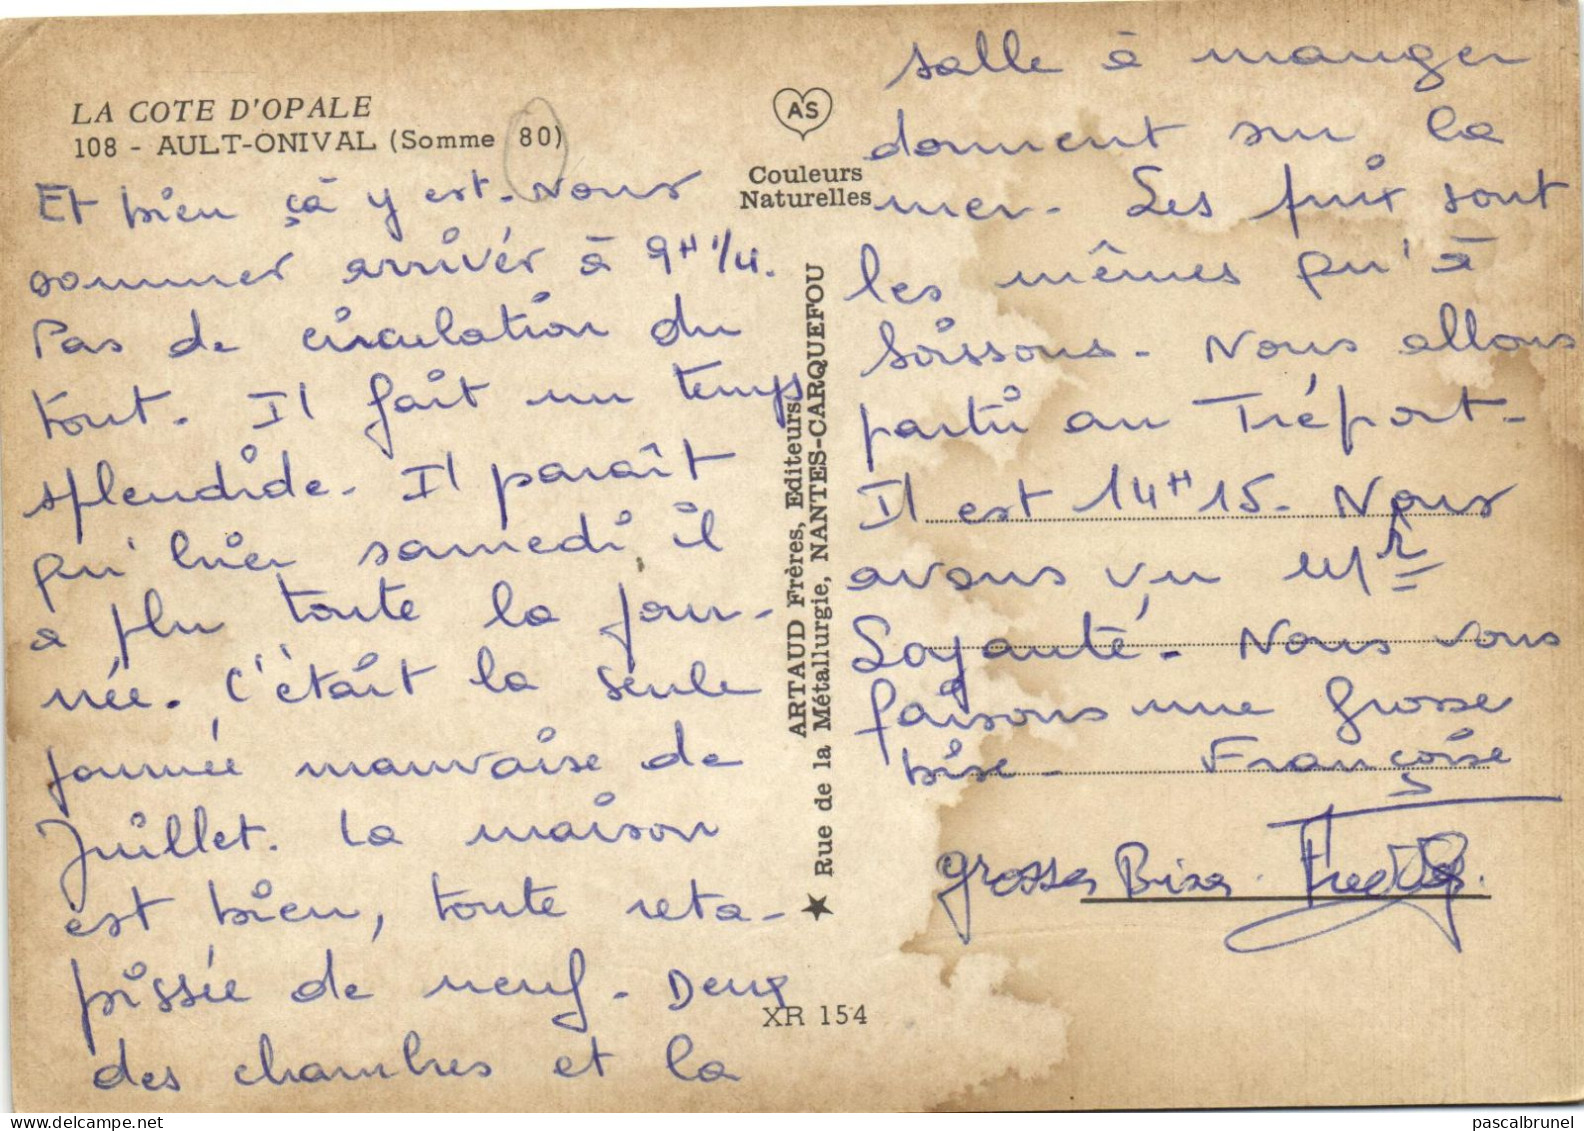 LA COTE D'OPALE
108 - AULT-ONIVAL (Somme 80)
Et bien çà y est. Nous
sommes arrivés à 9H 1/4.
Pas de circulation du
tout. Il fait un temps
splendide. Il paraît
qu'hier samedi il
a plu toute la jour-
née. C'était la seule
journée mauvaise de
Juillet. La maison
est bien, toute reta-
pissée de neuf. Deux
des chambres et la
AS
Couleurs
Naturelles
ARTAUD Frères, Editeurs
Rue de la Métallurgie, NANTES-CARQUEFOU
XR 154
salle à manger
donnent sur la
mer. Les prix sont
les mêmes qu'à
Soissons. Nous allons
partir au Tréport.
Il est 14H15. Nous
avons vu Mr
Loyauté. Nous vous
faisons une grosse
bise. Françoise
grosses Bises.
pascalbrunel